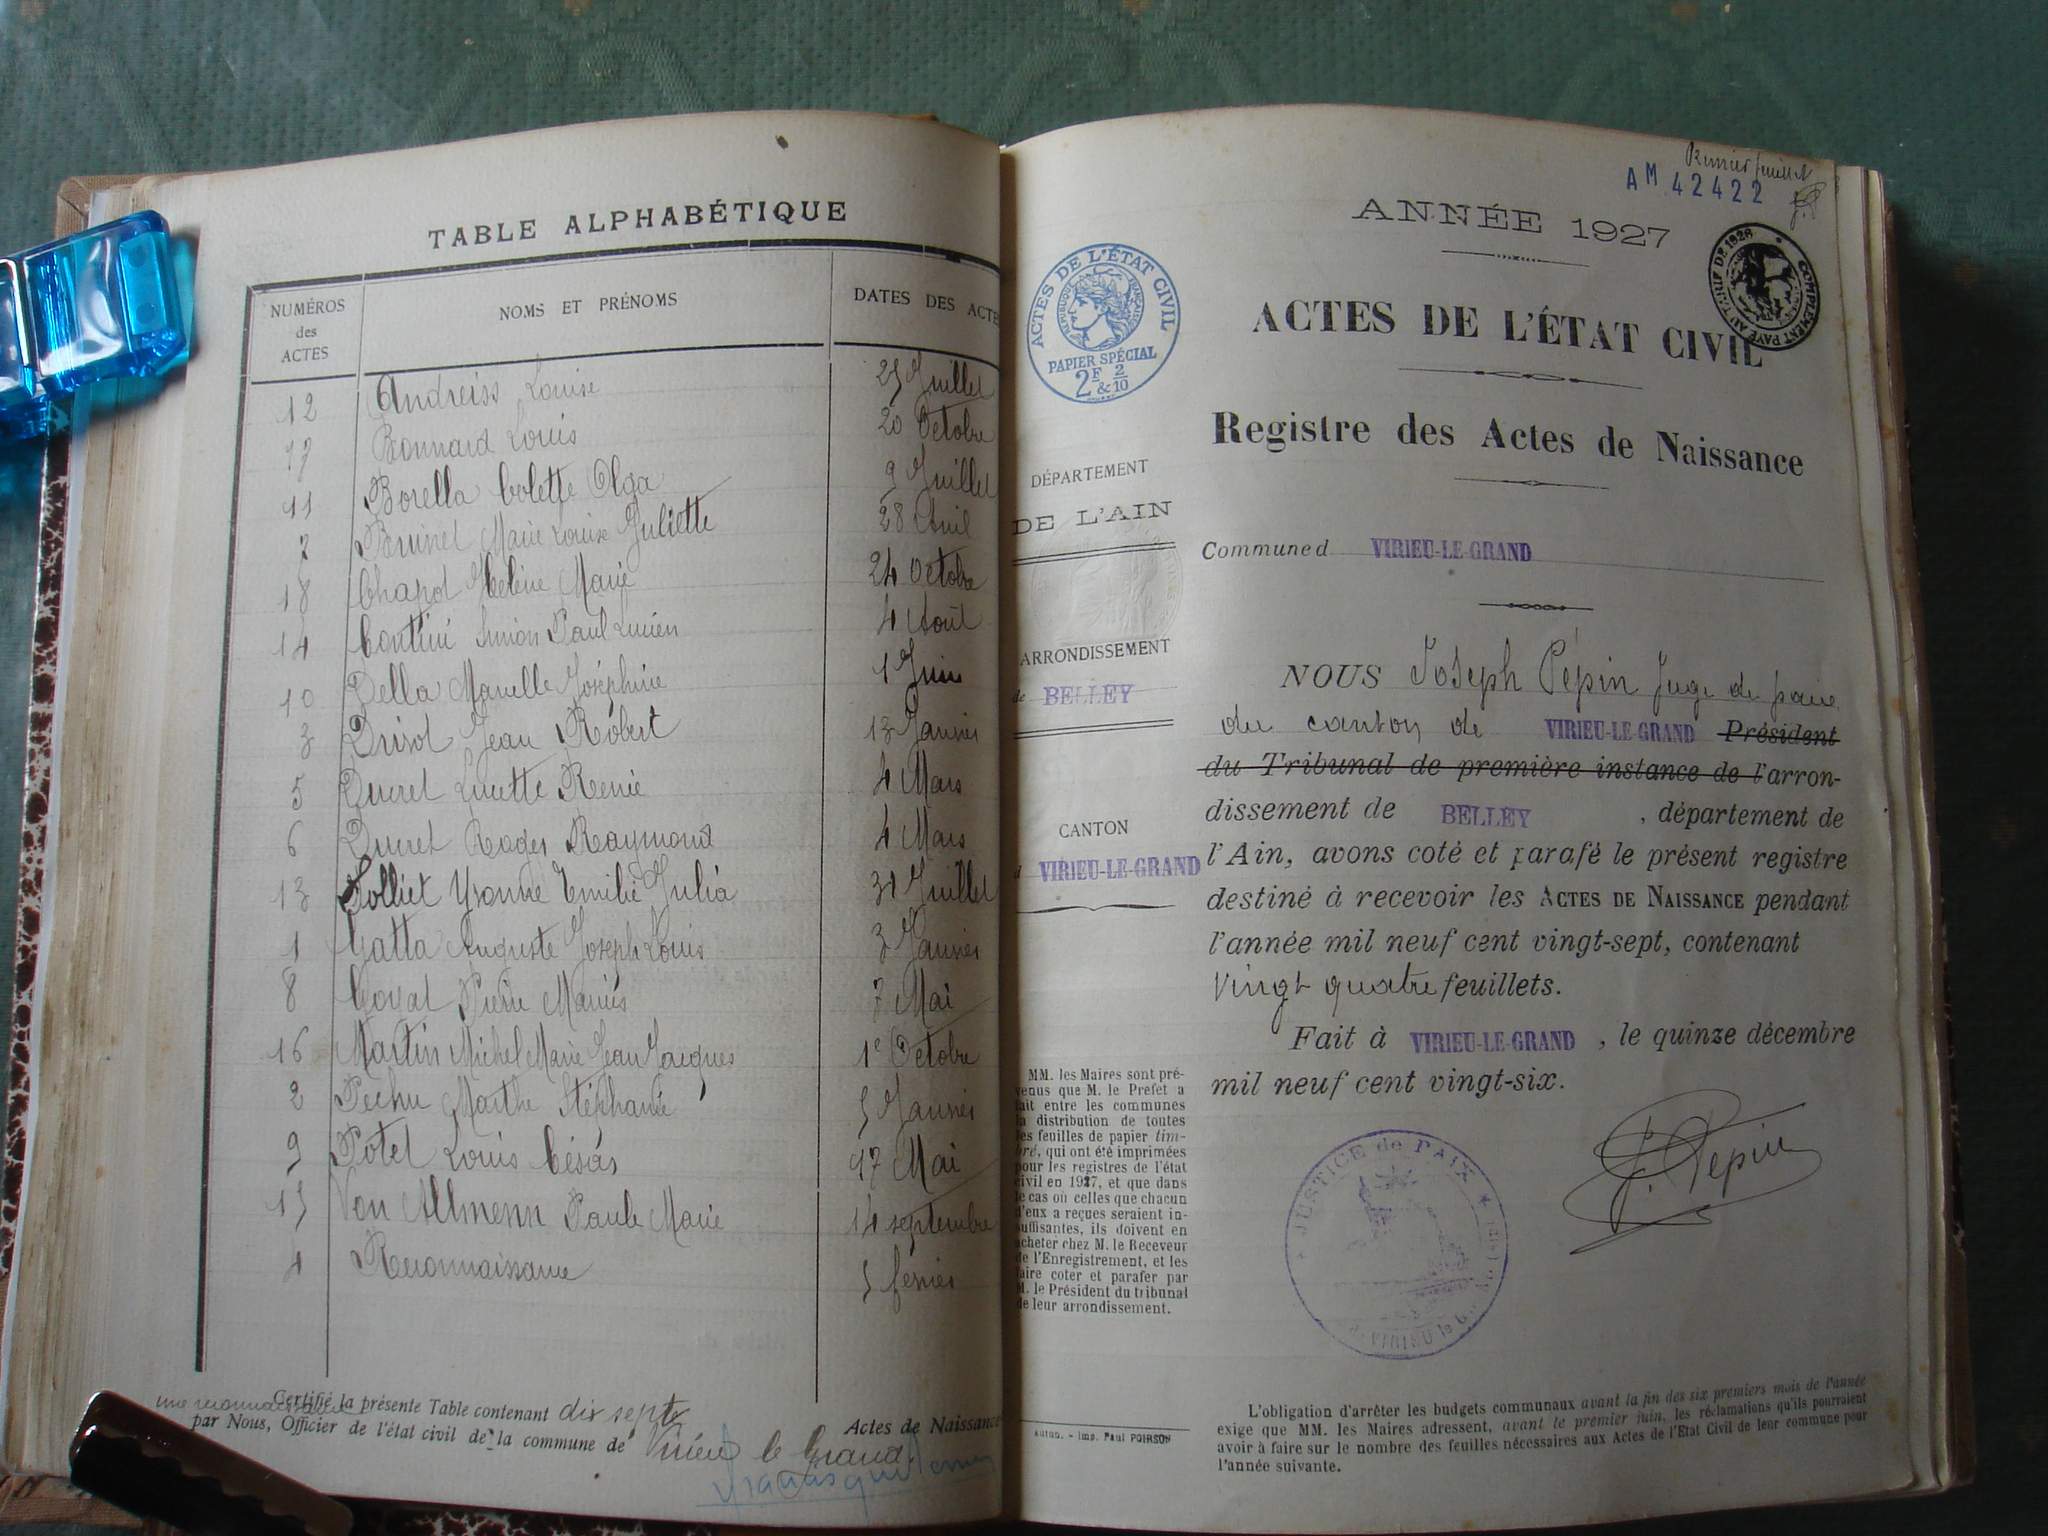 TABLE ALPHABÉTIQUE
NUMÉROS des ACTES NOMS ET PRÉNOMS DATES DES ACTE
12 Andreiss Louise 25 Juillet
17 Bonnard Louis 20 Octobre
11 Borella Colette Olga 9 Juillet
7 Brunet Marie Louise Juliette 28 Avril
18 Chapot Hélène Marie 24 Octobre
14 Contini Simon Paul Lucien 4 Août
10 Della Joséphine 1 Juin
3 Jean Robert 13 Janvier
5 Ducret Lucette Renée 4 Mars
6 Ducret Roger Raymond 4 Mars
13 Folliet Yvonne Emilie Julia 31 Juillet
1 Gatta Auguste Joseph Louis 3 Janvier
8 Goyat Pierre Marius 7 Mai
16 Martin Michel Marie Jean Jacques 1e Octobre
2 Pechu Marthe Stéphanie 5 Janvier
9 Potel Louis César 17 Mai
15 Von Allmenn Paule Marie 14 septembre
4 Reconnaissance 5 fevrier
une reconnaissance
Certifié la présente Table contenant dix sept Actes de Naissance
par Nous, Officier de l'état civil de la commune de Virieu le Grand.
Premier feuillet
AM 42422
ANNÉE 1927
COMPLEMENT PAYÉ AU TARIF DE 1926
ACTES DE L'ÉTAT CIVIL
RÉPUBLIQUE FRANÇAISE
PAPIER SPÉCIAL
2F & 2/10
ACTES DE L'ÉTAT CIVIL
Registre des Actes de Naissance
DÉPARTEMENT
DE L'AIN
Commune d VIRIEU-LE-GRAND
ARRONDISSEMENT
de BELLEY
CANTON
d VIRIEU-LE-GRAND
NOUS Joseph Pépin Juge de paix
du canton de VIRIEU-LE-GRAND Président
du Tribunal de première instance de l'arron-
dissement de BELLEY, département de
l'Ain, avons coté et parafé le présent registre
destiné à recevoir les ACTES DE NAISSANCE pendant
l'année mil neuf cent vingt-sept, contenant
Vingt quatre feuillets.
Fait à VIRIEU-LE-GRAND, le quinze décembre
mil neuf cent vingt-six.
J. Pepin
JUSTICE de PAIX
VIRIEU le G
MM. les Maires sont pré-
venus que M. le Prefet a
fait entre les communes
la distribution de toutes
les feuilles de papier tim-
bré, qui ont été imprimées
pour les registres de l'état
civil en 1927, et que dans
le cas où celles que chacun
d'eux a reçues seraient in-
suffisantes, ils doivent en
acheter chez M. le Receveur
de l'Enregistrement, et les
faire coter et parafer par
M. le Président du tribunal
de leur arrondissement.
Autun. - Imp. Paul POIRSON
L'obligation d'arrêter les budgets communaux avant la fin des six premiers mois de l'année
exige que MM. les Maires adressent, avant le premier juin, les réclamations qu'ils pourraient
avoir à faire sur le nombre des feuilles nécessaires aux Actes de l'État Civil de leur commune pour
l'année suivante.